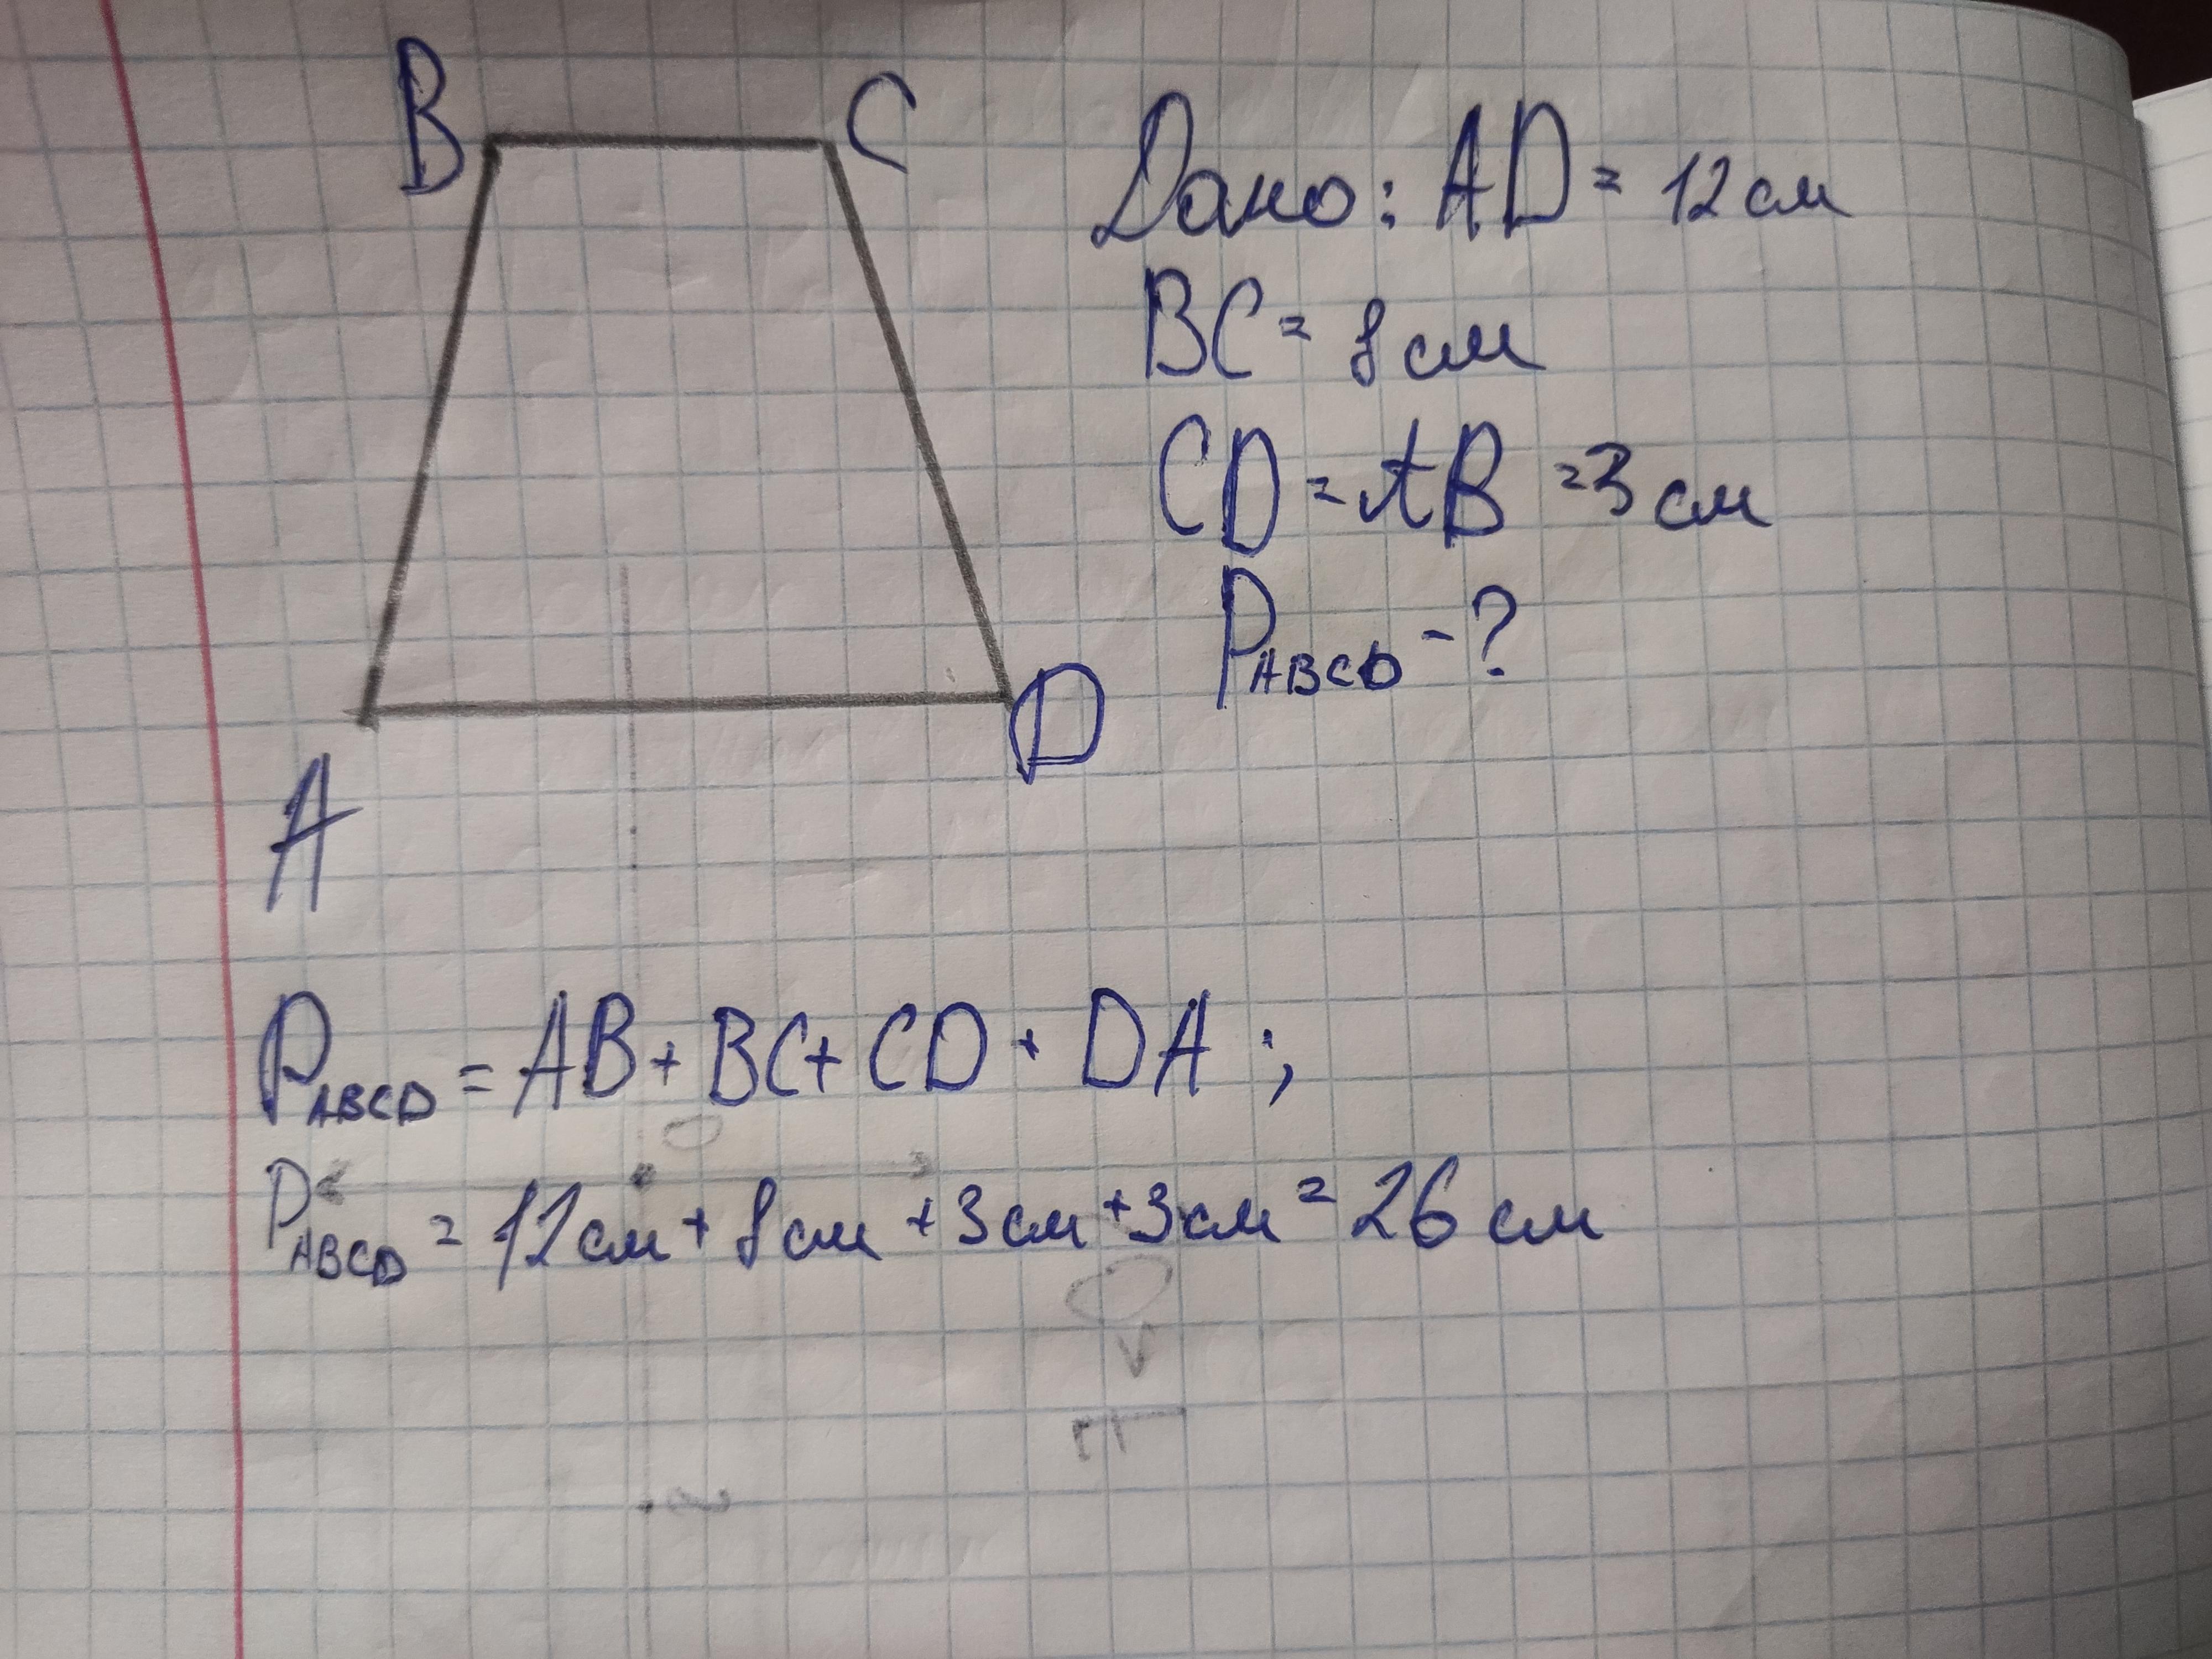 B
C
Дано: AD = 12 см
BC = 8 см
CD = AB = 3 см
P ABCD - ?
A
D
P ABCD = AB + BC + CD + DA ;
P ABCD = 12 см + 8 см + 3 см + 3 см = 26 см